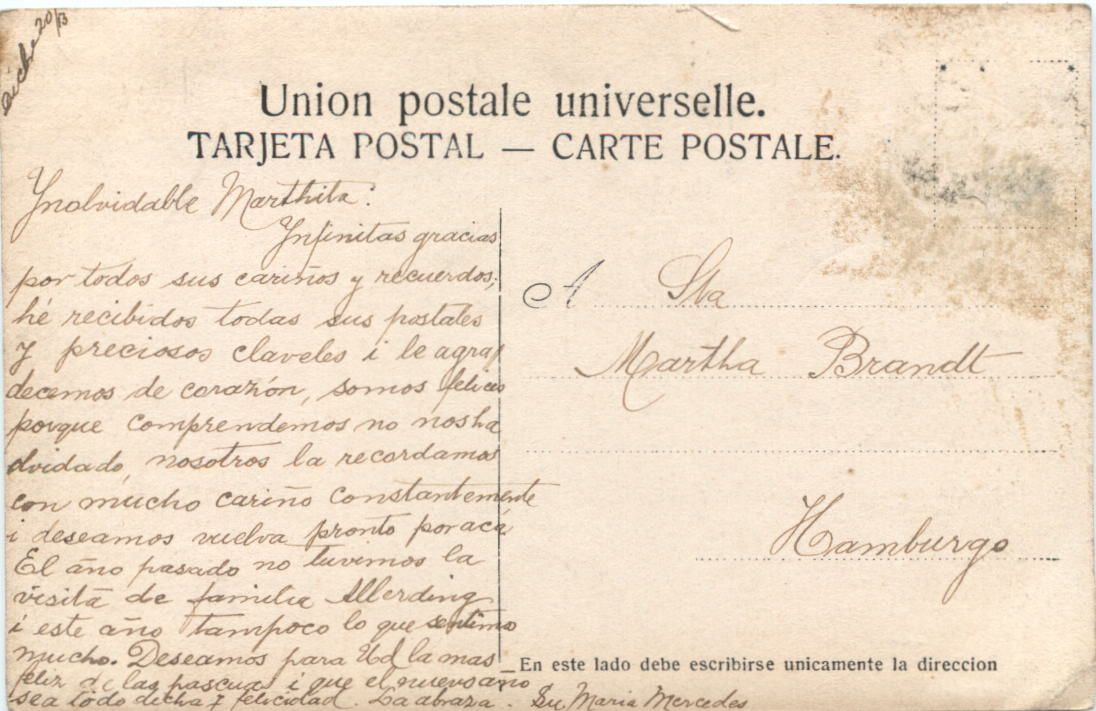 Diche 20/13
Union postale universelle.
TARJETA POSTAL — CARTE POSTALE.
Ynolvidable Marthita:
Ynfinitas gracias
por todos sus cariños y recuerdos,
hé recibidos todas sus postales
y preciosos claveles i le agra/
decemos de corazón, somos felices
porque comprendemos no nos ha
olvidado, nosotros la recordamos
con mucho cariño constantemente
i deseamos vuelva pronto por acá
El año pasado no tuvimos la
visita de familia Allerding
i este año tampoco lo que sentimos
mucho. Deseamos para Ud la mas
feliz de las pascuas i que el nuevo año
sea todo dicha y felicidad. La abraza. Su Maria Mercedes
A Sta
Martha Brandt
Hamburgo
En este lado debe escribirse unicamente la direccion